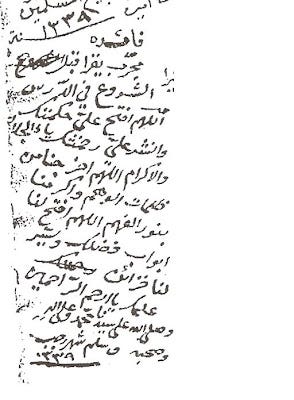 سنة ١٣٣٩
فائده
مجرب يقرا قبل
الشروع في الدرس
اللهم افتح علي حكمتك
وانشر علي رحمتك ياذا الجلال
والاكرام اللهم اخرجنا من
ظلمات الوهم واكرمنا
بنور الفهم اللهم افتح لنا
ابواب فضلك ويسر
لنا خزائن
علمك ياارحم الراحمين
وصلى الله على سيدنا محمد وعلى اله
وصحبه وسلم شهر رجب
١٣٣٩